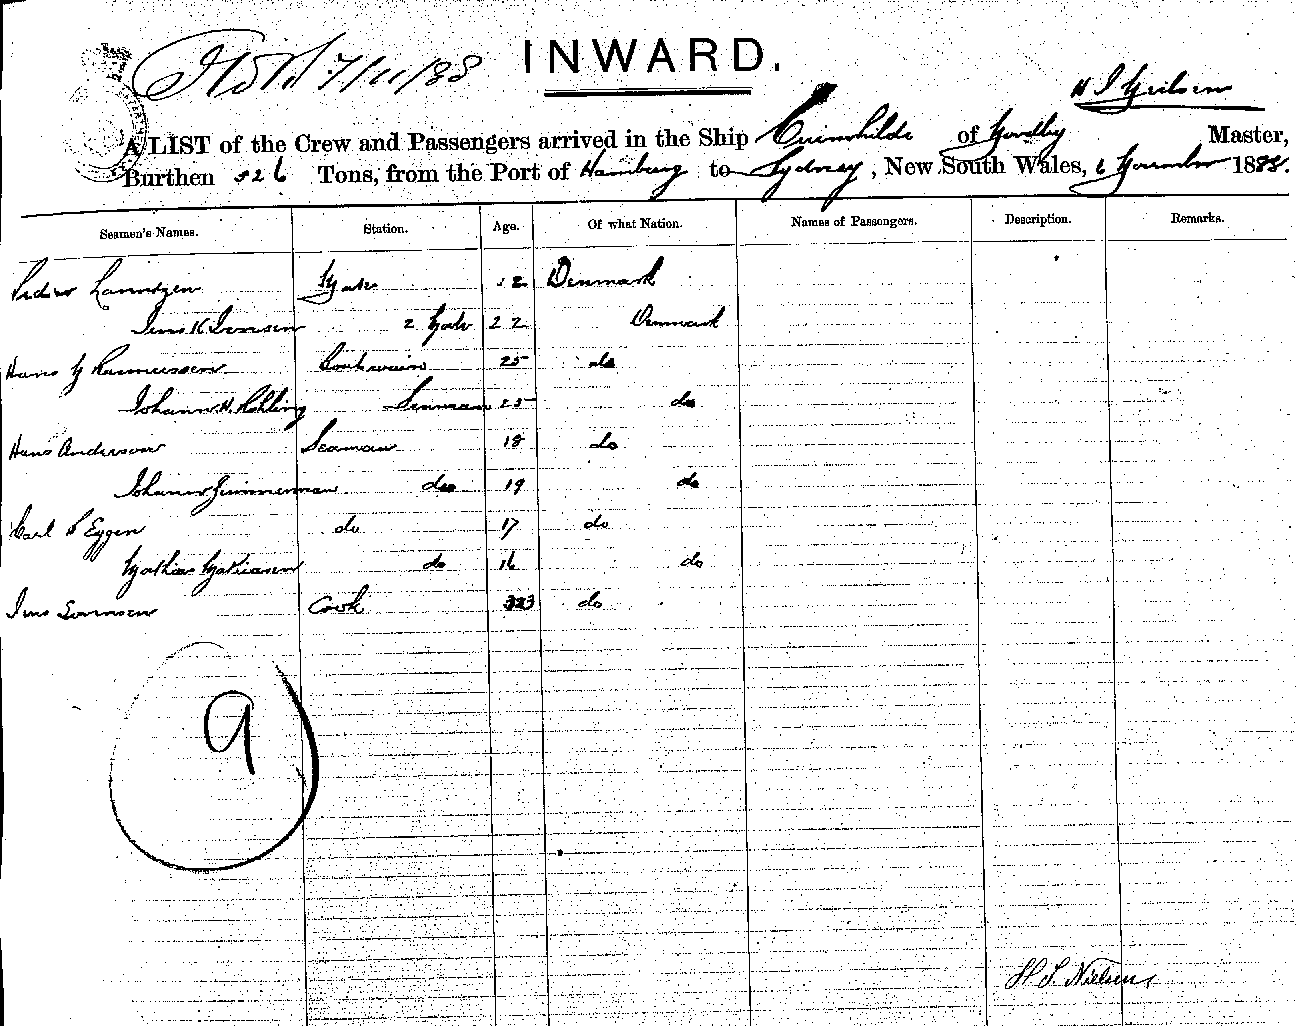 7/11/88
INWARD.
H S Neilsen
A LIST of the Crew and Passengers arrived in the Ship of Master,
Burthen 526 Tons, from the Port of Hamburg to Sydney, New South Wales, 6 November 1888.
Seamen's Names. Station. Age. Of what Nation. Names of Passengers. Description. Remarks.
Lauritzen Mate 52 Denmark
Jens K 2 Mate 22 Denmark
Hans Rasmussen Boatswain 25 do
Johann H. Seaman 25 do
Hans Anderson Seaman 18 do
Johann Zimmerman do 19 do
Carl Eggen do 17 do
Mathias Mathiasen do 16 do
Jens Sorensen Cook do
9
H. S. Nielsen